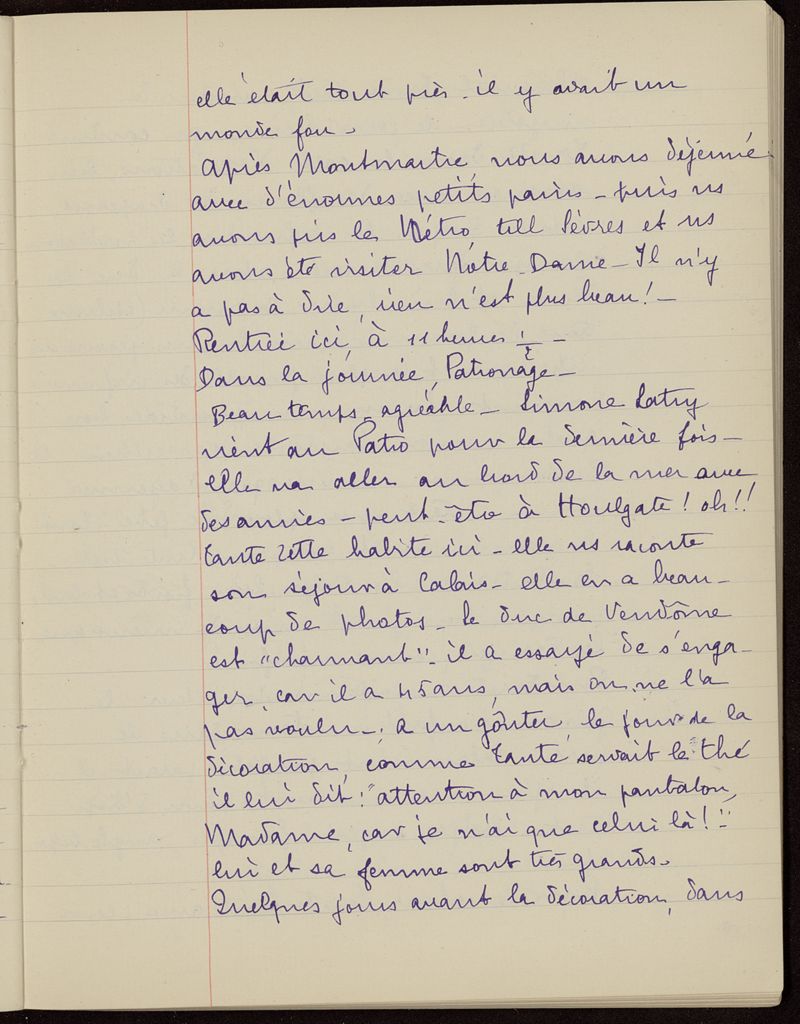 elle était tout près - il y avait un
monde fou -
Après Montmartre, nous avons déjeuné
avec d'énormes petits pains - puis ns
avons pris le Métro till Sèvres et ns
avons été visiter Notre-Dame - Il n'y
a pas à dire, rien n'est plus beau ! -
Rentrée ici, à 11 heures 1/2 -
Dans la journée, Patronage -
Beau temps - agréable - Simone Latry
vient au Patro pour la dernière fois -
elle va aller au bord de la mer avec
des amies - peut-être à Houlgate ! oh !!
tante Zette habite ici - elle ns raconte
son séjour à Calais - elle en a beau-
coup de photos - le duc de Vendôme
est "charmant" - il a essayé de s'enga-
ger, car il a 45 ans, mais on ne l'a
pas voulu - ; a un goûter, le jour de la
décoration, comme tante servait le thé
il lui dit : "attention à mon pantalon,
Madame, car je n'ai que celui là ! "
lui et sa femme sont très grands -
Quelques jours avant la décoration, dans